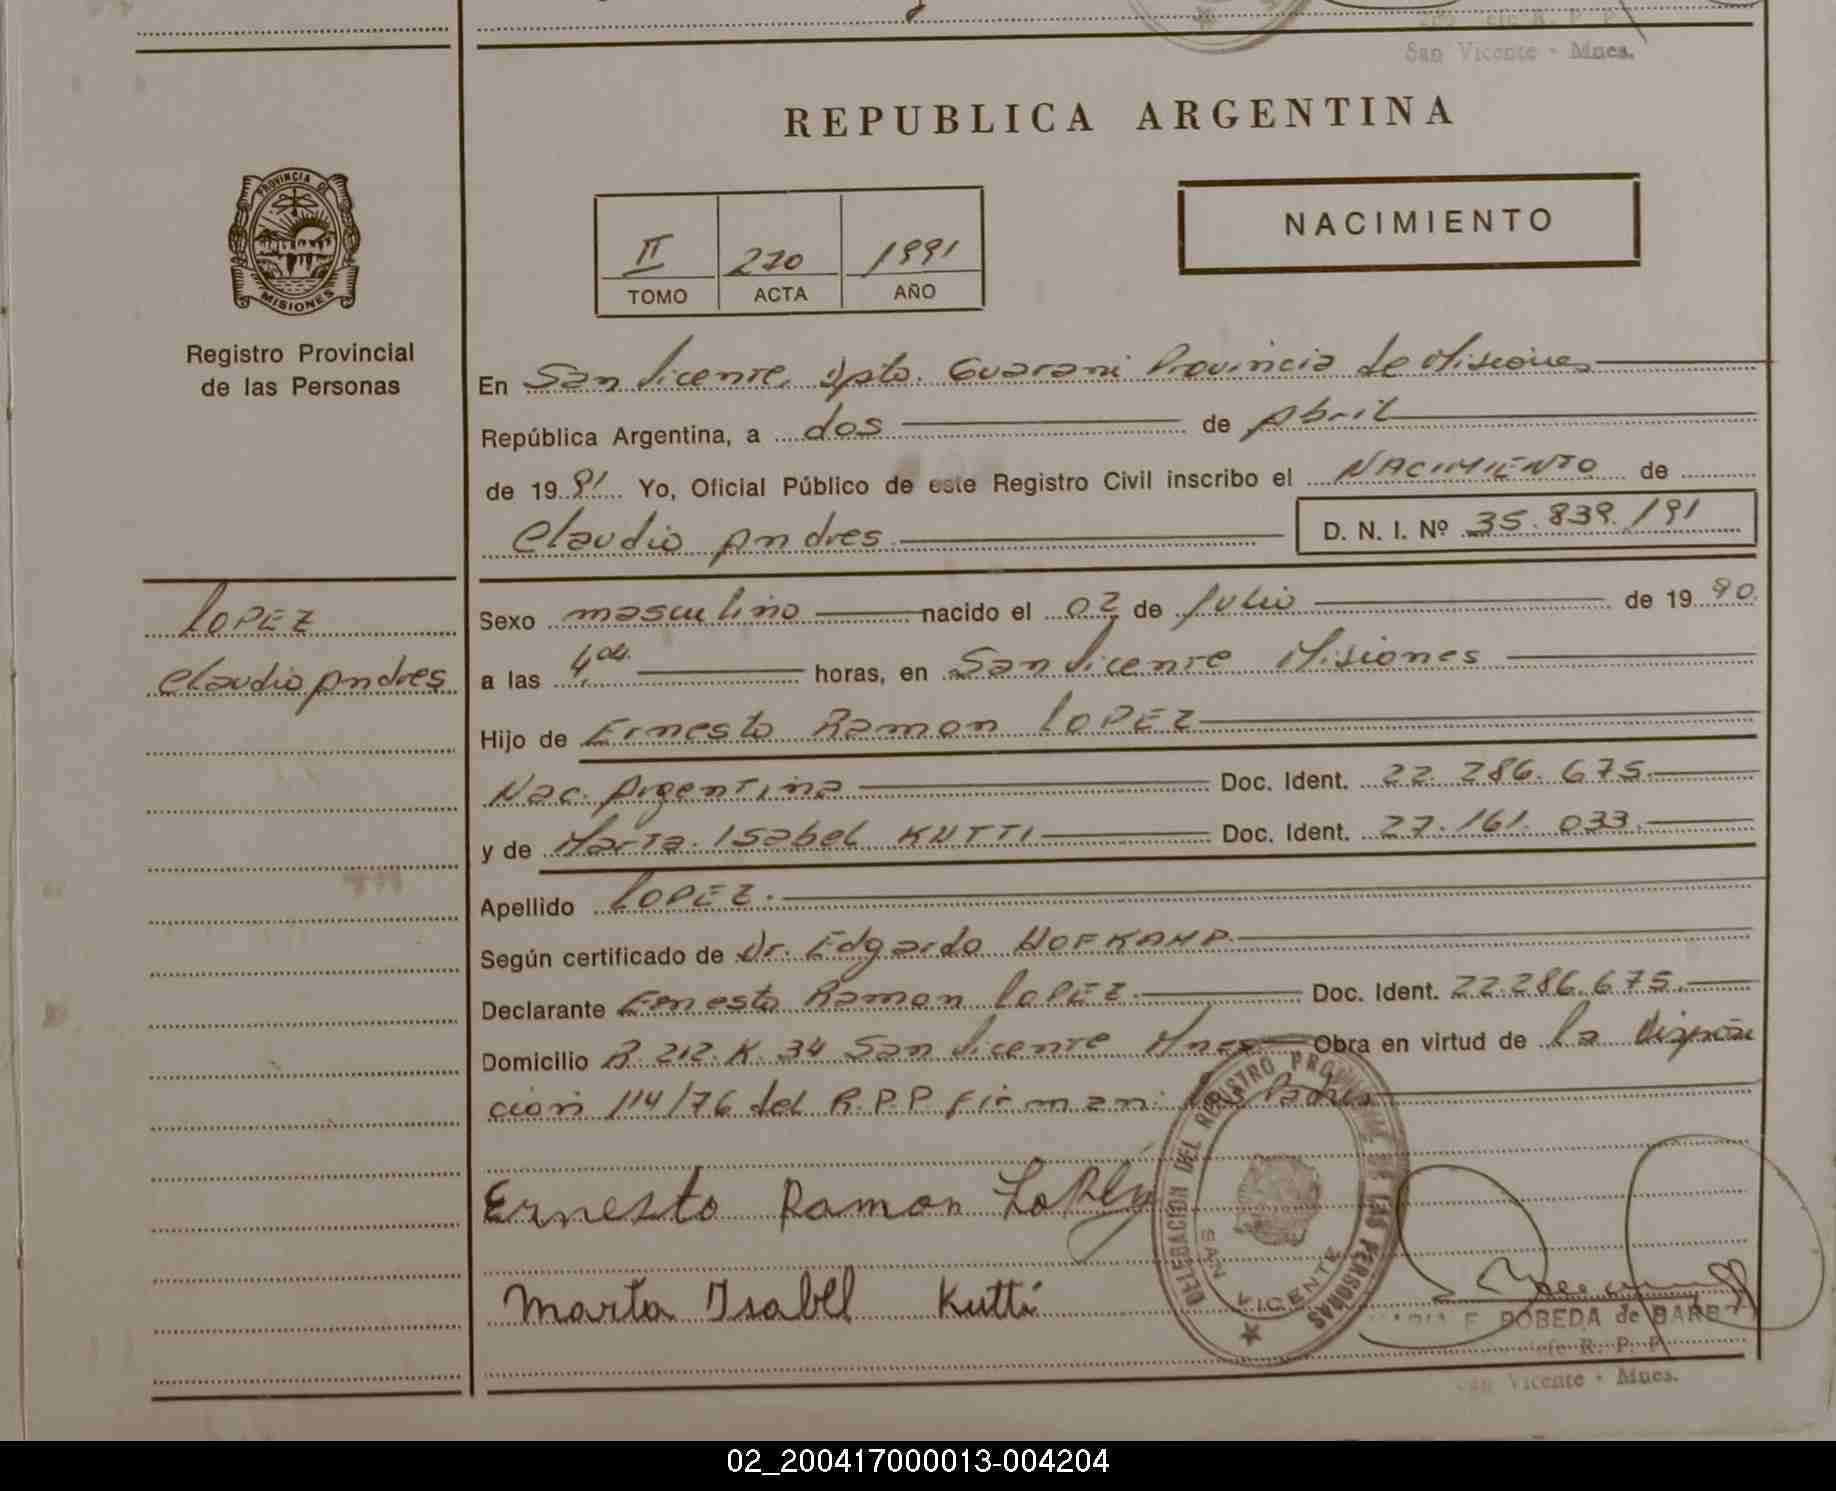 San Vicente - Mnes.
REPUBLICA ARGENTINA
PROVINCIA DE
MISIONES
Registro Provincial
de las Personas
II 270 1991
TOMO ACTA AÑO
NACIMIENTO
En San Vicente, Dpto. Guarani Provincia de Misiones
República Argentina, a dos de Abril
de 1991 Yo, Oficial Público de este Registro Civil inscribo el NACIMIENTO de
Claudio Andres D. N. I. Nº 35.839.191
LOPEZ
Claudio Andres
Sexo masculino nacido el 02 de Julio de 1990
a las 4 horas, en San Vicente Misiones
Hijo de Ernesto Ramon LOPEZ
Nac. Argentina Doc. Ident. 22.286.675.
y de Marta Isabel KUTTI Doc. Ident. 27.161.033.
Apellido LOPEZ.
Según certificado de Dr. Edgardo HOFKAMP.
Declarante Ernesto Ramon LOPEZ. Doc. Ident. 22.286.675.
Domicilio R. 212. K. 34 San Vicente Mnes Obra en virtud de la Disposi
cion 114/76 del R.P.P. firman: los Padres
Ernesto Ramon Lopez
Marta Isabel Kutti
DELEGACION DEL REGISTRO PROVINCIAL DE LAS PERSONAS
SAN VICENTE
MARIA E. POBEDA de BARB
Jefe R. P. P.
San Vicente - Mnes.
02_200417000013-004204